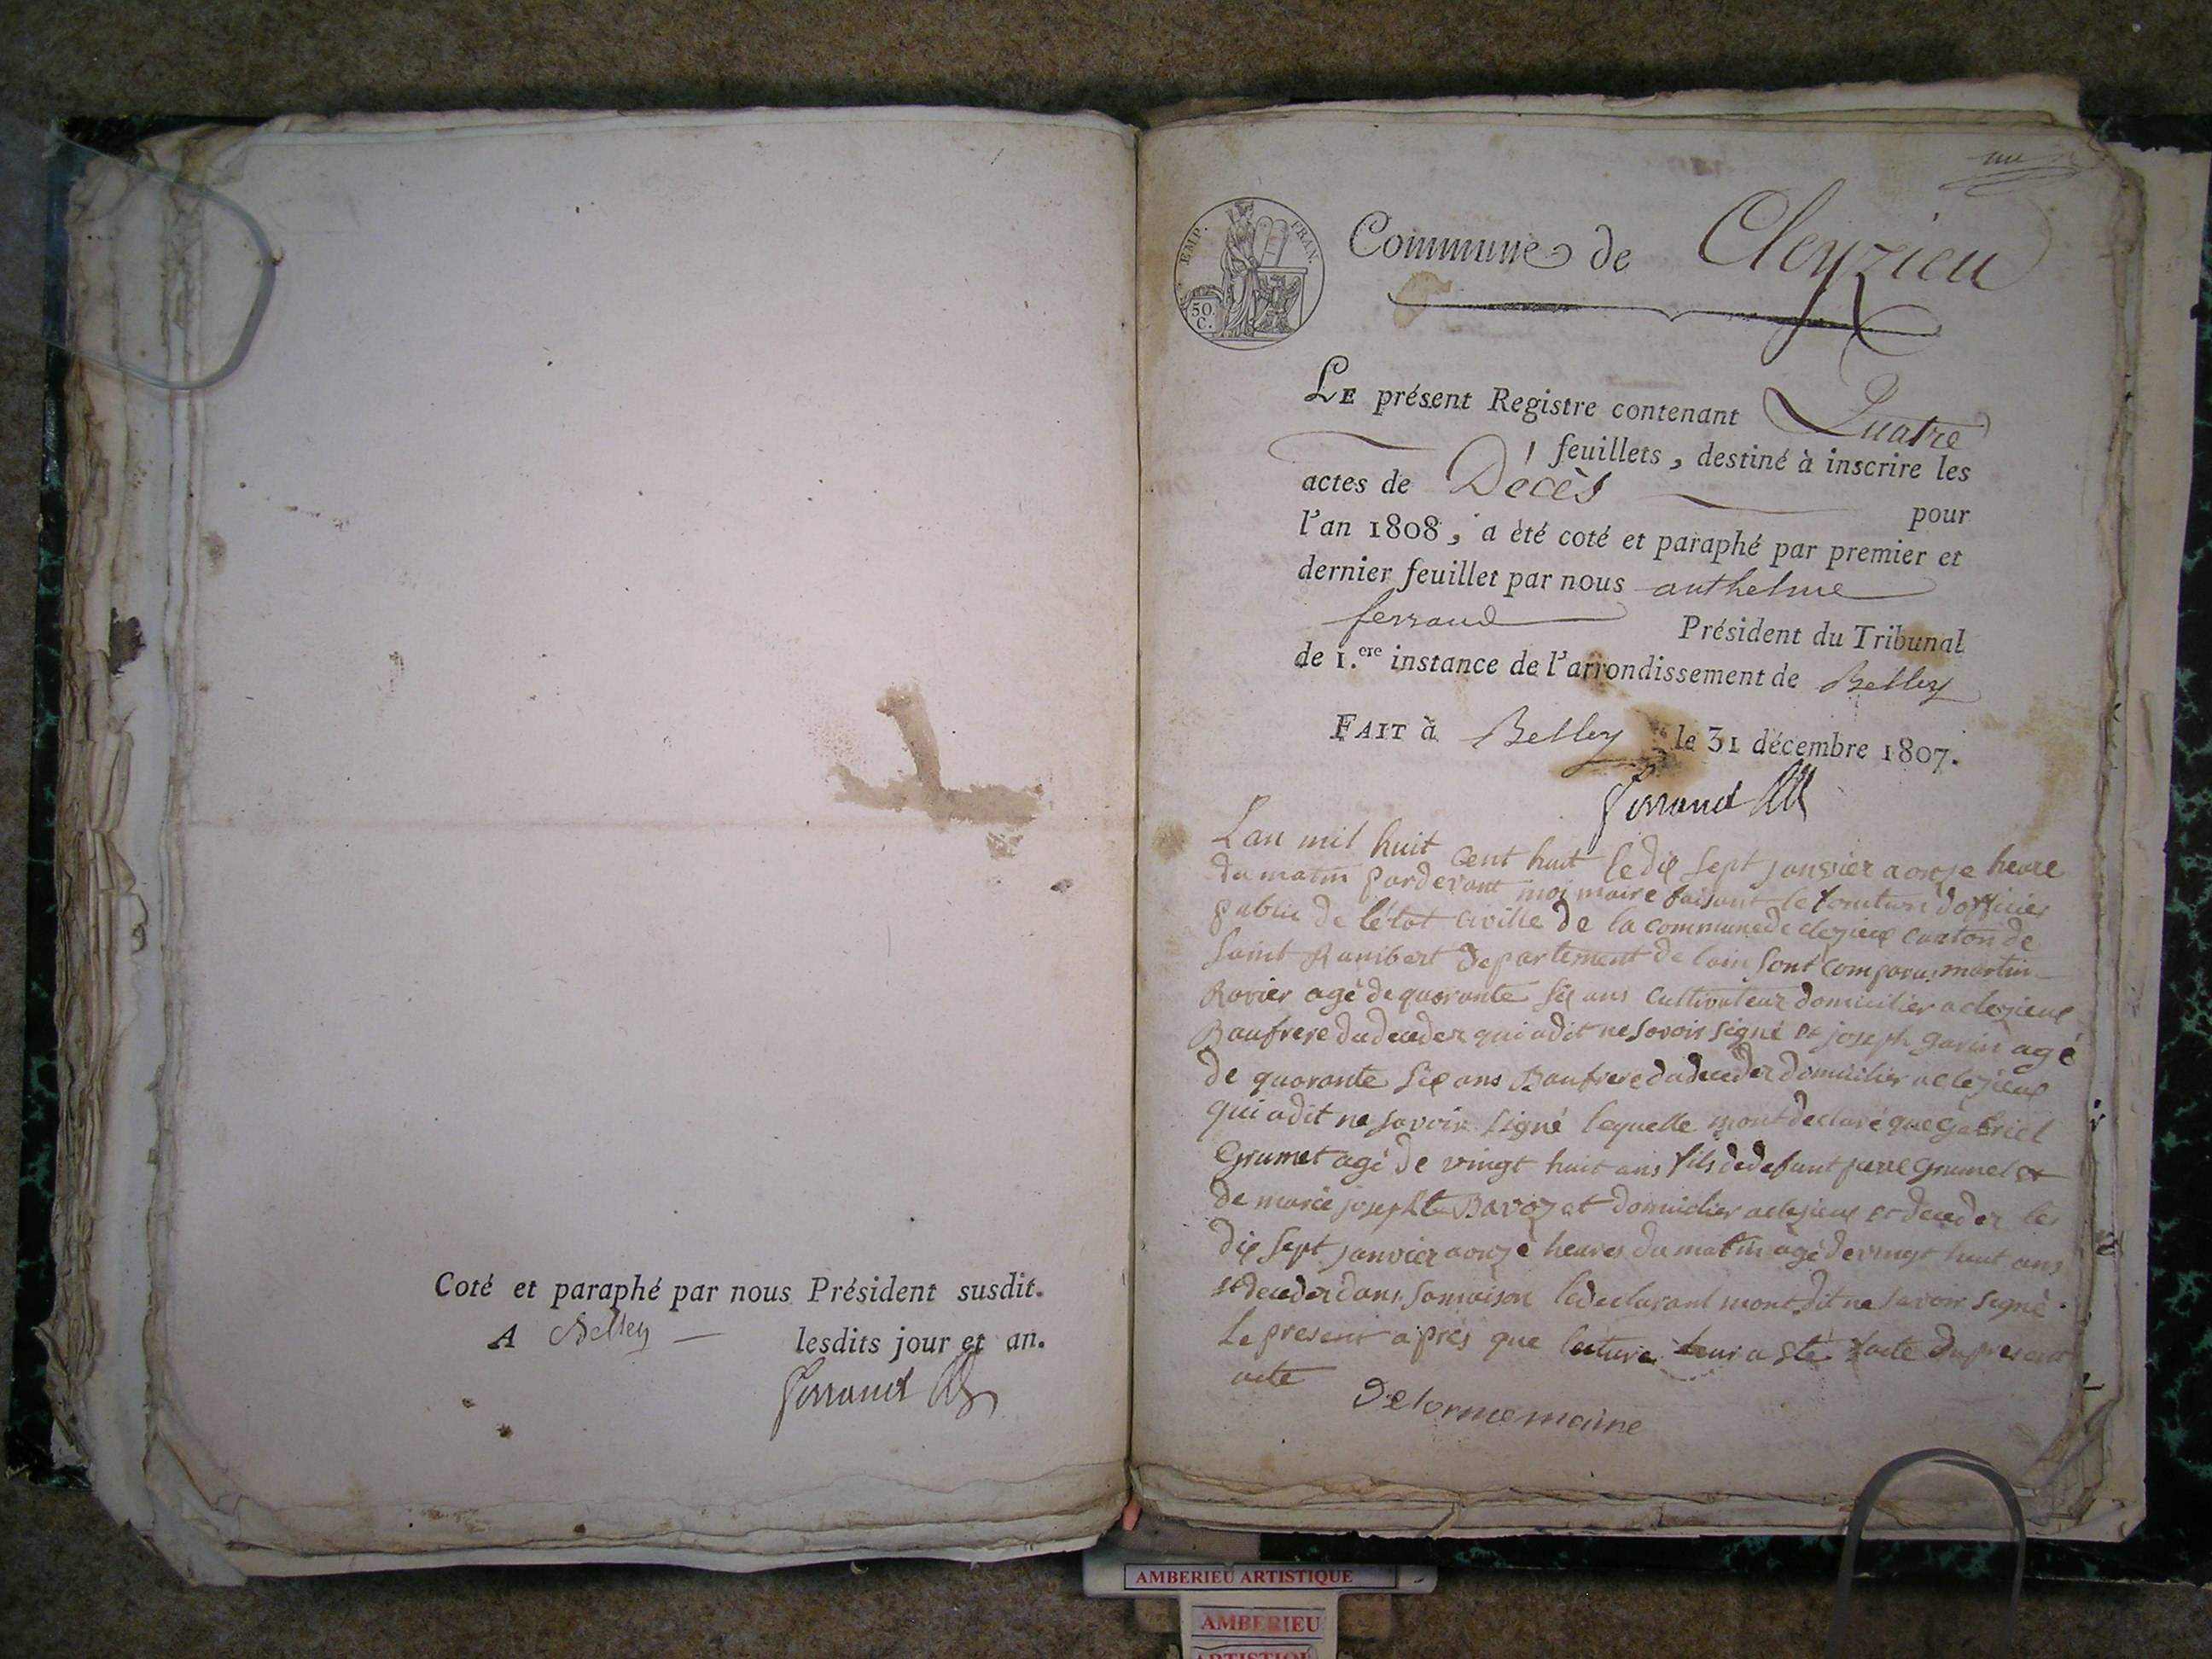 Coté et paraphé par nous Président susdit.
A Belley lesdits jour et an.
Ferrand
un
EMP. FRAN.
50 C.
Commune de Cleyzieu
LE présent Registre contenant Quatre
feuillets, destiné à inscrire les
actes de Décès pour
l'an 1808, a èté coté et paraphé par premier et
dernier feuillet par nous anthelme
ferrand Président du Tribunal
de 1.ere instance de l'arrondissement de Belley
FAIT à Belley le 31 décembre 1807.
Ferrand
Lan mil huit cent huit le dix sept janvier a onze heure
du matin pardevant moi maire faisant le fonction dofficier
public de létat civille de la commune de clezieux canton de
Saint Rambert departement de lain sont comparus martin
Ravier agé de quarante six ans cultivateur domicilier a clezieux
Baufrere du deceder qui a dit ne savoir signé et joseph garin agé
de quarante six ans Baufrere du deceder domicilier a clezieux
qui a dit ne savoir signé lequelle mont declaré que gabriel
Grumet agé de vingt huit ans fils de defunt pierre Grumet et
de marie josephte Bavoz et domicilier a clezieux et deceder le
dix sept janvier a onze heures du matin agé de vingt huit ans
et deceder dans sa maison le declarant mont dit ne savoir signé
Le present après que lecture leur a eté faite du present
acte
Delorme maire
AMBERIEU ARTISTIQUE
AMBERIEU
ARTISTIQUE